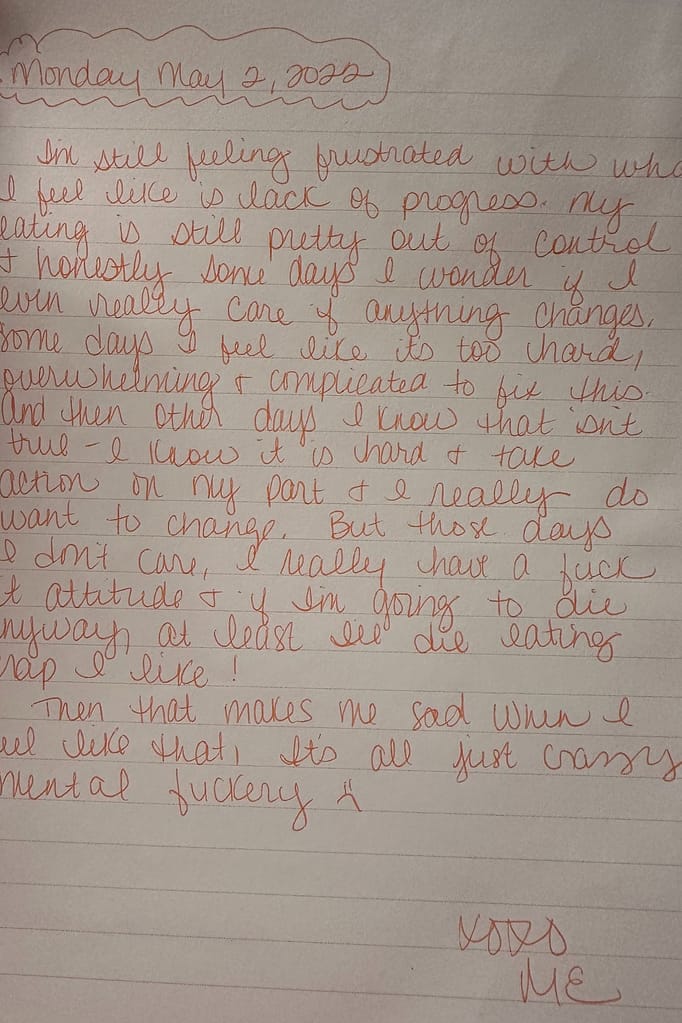 Monday May 2, 2022
I'm still feeling frustrated with wha
I feel like is lack of progress. My
eating is still pretty out of control
+ honestly some days I wonder if I
even really care if anything changes.
Some days I feel like its too hard,
overwhelming + complicated to fix this.
And then other days I know that isn't
true - I know it is hard + take
action on my part + I really do
want to change. But those days
I don't care, I really have a fuck
it attitude + if I'm going to die
nyway, at least I'll die eating
rap I like!
Then that makes me sad when I
eel like that, It's all just crazy
mental fuckery :(
XOXO
ME